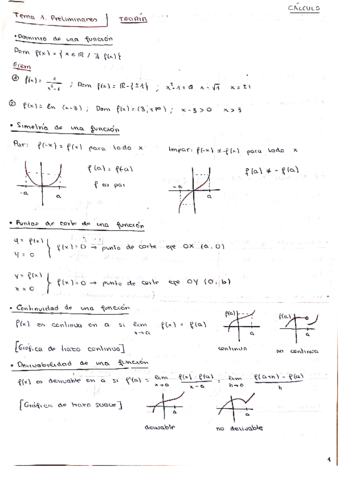 CÁLCULO
Tema 1. Preliminares | TEORÍA
• Dominio de una función
Dom f(x) = {x ∈ ℝ / ∃ f(x)}
Ejem
① f(x) = 1/x²-1 ; Dom f(x) = ℝ-{±1} ; x²-1=0 x=√1 x=±1
② f(x) = ln (x-3) ; Dom f(x) = (3,+∞) ; x-3>0 x>3
• Simetría de una función
Par: f(-x) = f(x) para todo x Impar: f(-x) ≠ -f(x) para todo x
f(a) = f(-a) f(a) ≠ -f(a)
f es par
-a a -a a
• Puntos de corte de una función
y = f(x)
y = 0 } f(x)=0 → punto de corte eje OX (a,0)
y = f(x)
x = 0 } f(x)=0 → punto de corte eje OY (0,b)
• Continuidad de una función
f(x) es continua en a si lim x→a f(x) = f(a) f(a) f(a)
a a
[Gráfica de trazo continuo] continua no continua
• Derivabilidad de una función
f(x) es derivable en a si f'(a) = lim x→a f(x)-f(a)/x-a = lim h→0 f(a+h)-f(a)/h
[Gráfica de trazo suave] a a
derivable no derivable
1